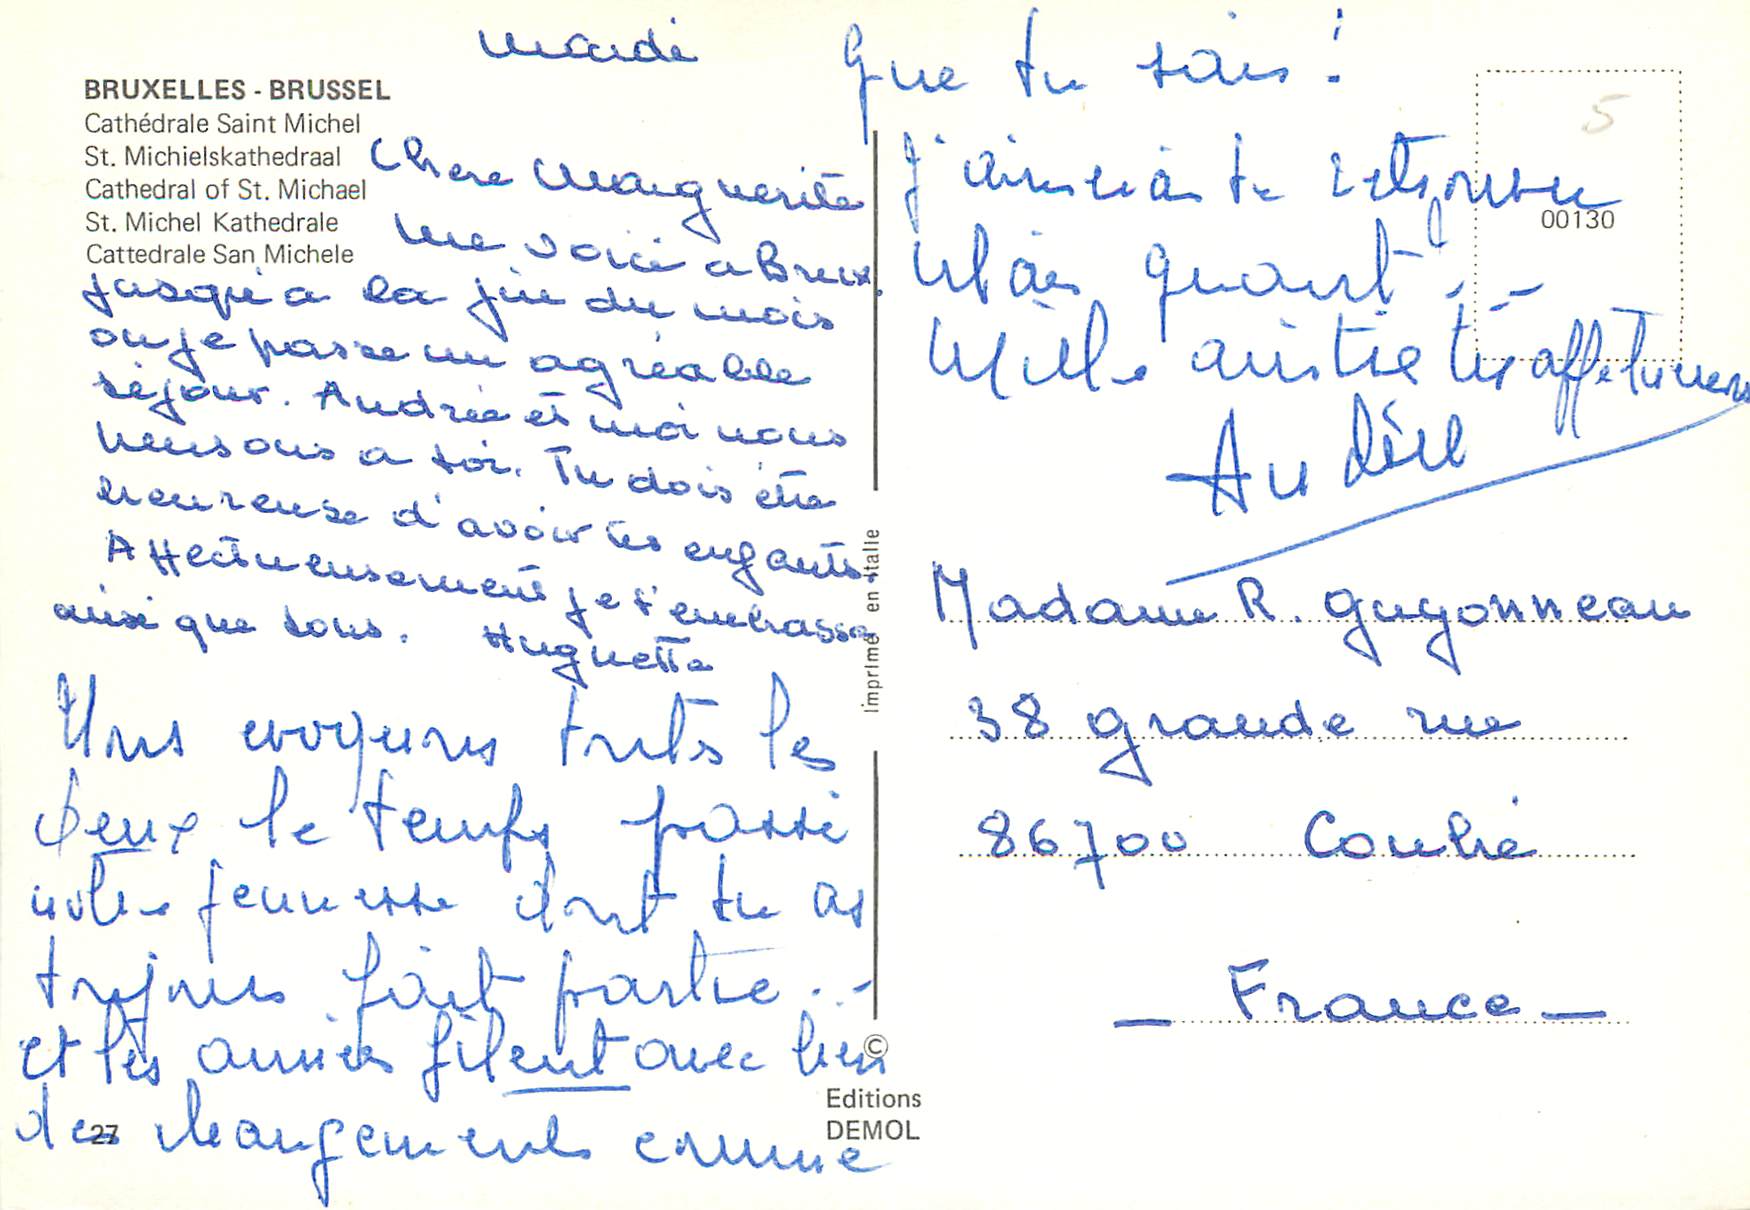 mardi
BRUXELLES - BRUSSEL
Cathédrale Saint Michel
St. Michielskathedraal
Cathedral of St. Michael
St. Michel Kathedrale
Cattedrale San Michele
Chere Marguerite
me voici a Brux.
jusqu'a la fin du mois
ou je passe un agréable
séjour. Andrée et moi nous
pensons a toi. Tu dois être
heureuse d'avoir tes enfants.
Affectueusement je t'embrasse
ainsi que tous. Huguette
Nous evoquons toutes les
deux le temps passé
notre jeunesse dont tu as
toujours fait partie...
et les années filent avec bien
des changements comme
que tu sais!
J'aimerais te retrouver
mais quand...
Mille amitiés très affectueuses
Andrée
Madame R. Guyonneau
38 grande rue
86700 Couhé
_ France _
5
00130
imprimé en Italie
©
Editions
DEMOL
27